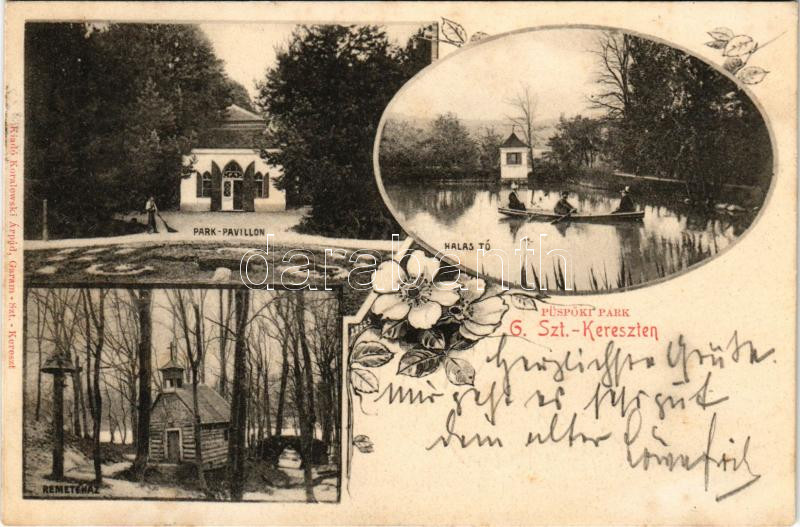 PARK-PAVILLON
HALAS TÓ
darabanth
REMETEHÁZ
PÜSPÖKI PARK
G. Szt.-Kereszten
Herzlichste Grüße.
Mir geht es sehr gut
dem alter
Kiadó Koralewski Árpád, Garam-Szt.-Kereszt